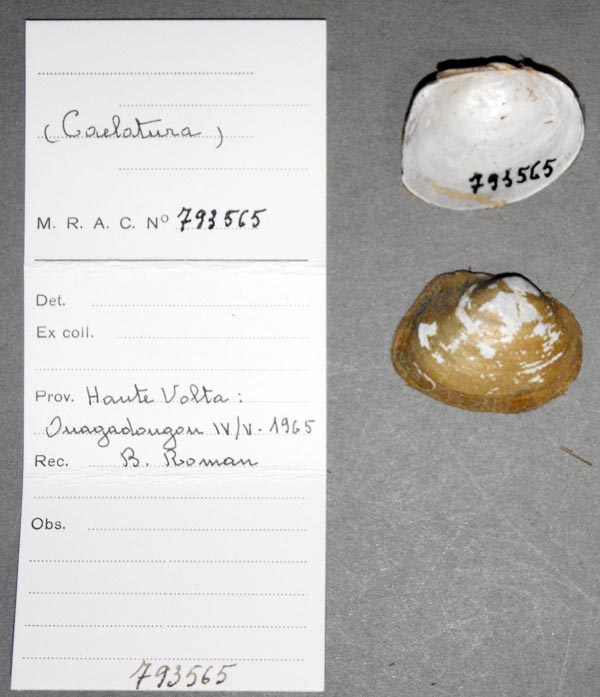 (Caelatura)
M. R. A. C. Nº 793565
Det.
Ex coll.
Prov. Haute Volta :
Ouagadougou IV/V-1965
Rec. B. Roman
Obs.
793565
793565